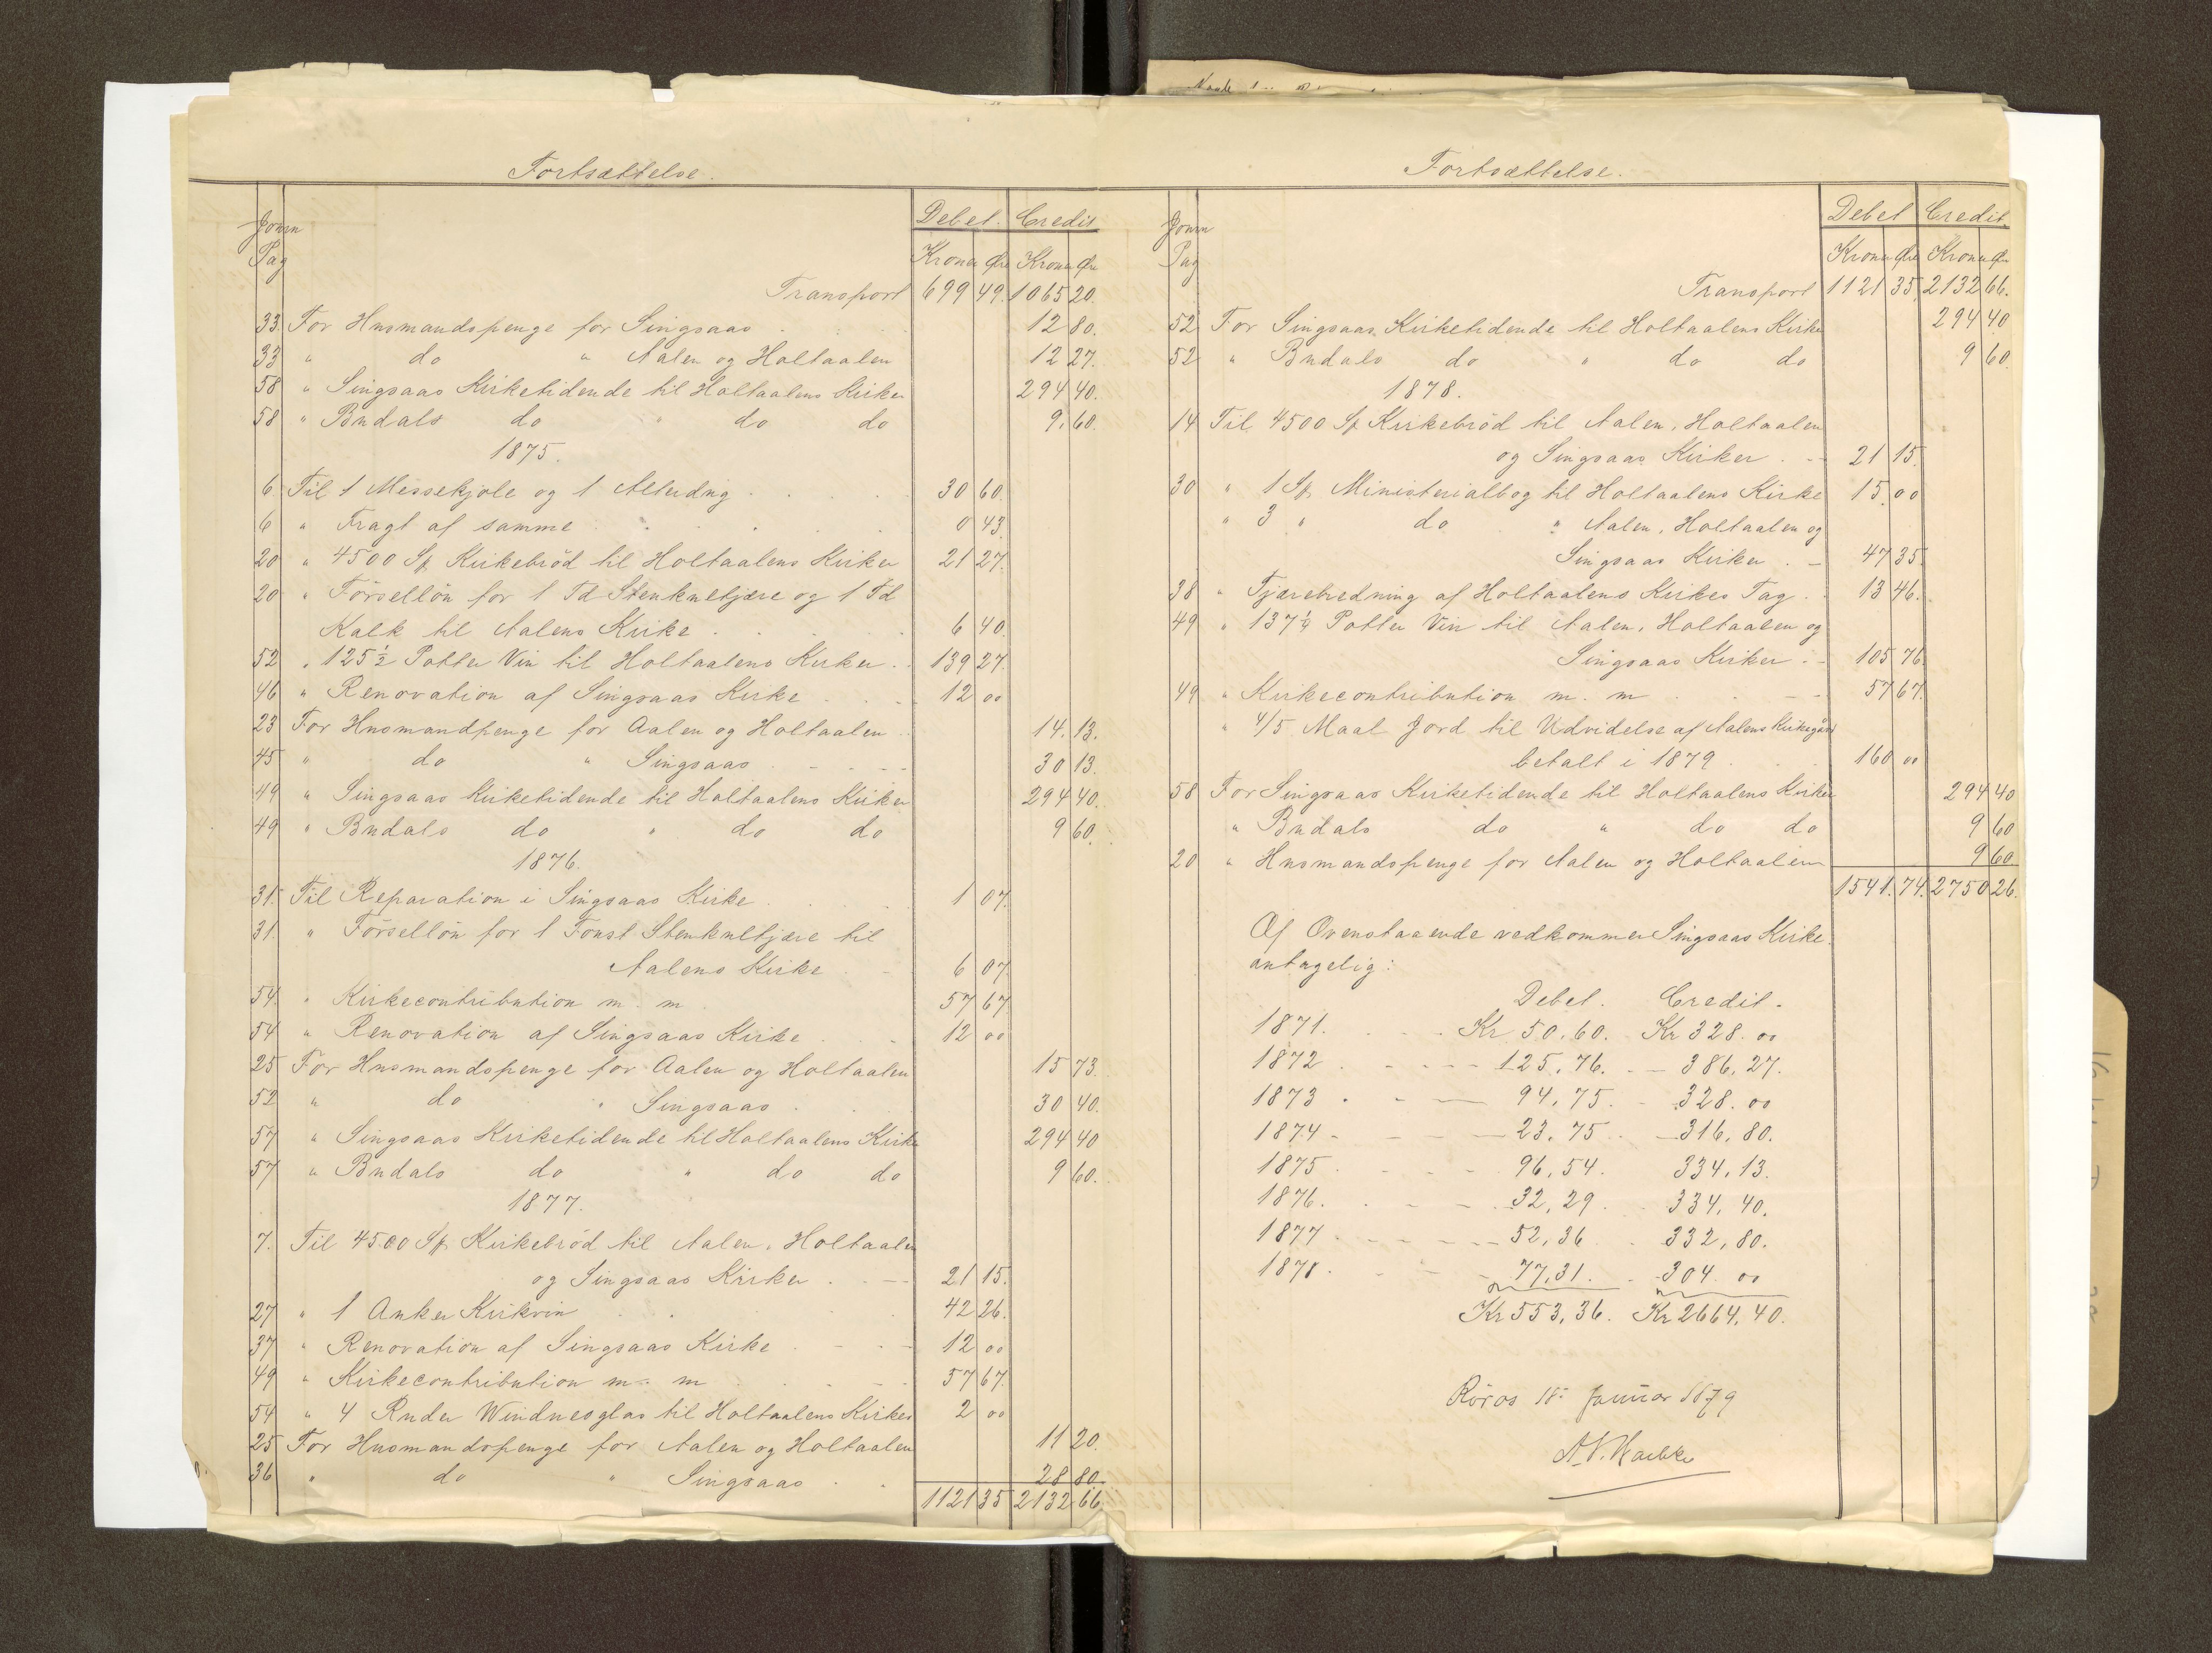 Fortsættelse.
Journ Pag
Debet. Credit
Kroner Øre Kroner Øre
Transport 699 49. 1065 20.
33. For Husmandspenge for Singsaas 12 80.
33 " do " Aalen og Holtaalen 12 27.
58 " Singsaas Kirketidende til Holtaalens Kirker 294 40.
58 " Budals do " do do 9. 60.
1875.
6 Til 1 Messekjole og 1 Alterdug 30 60.
6 " Fragt af samme 0 43.
20 " 4500 St Kirkebröd til Holtaalens Kirker 21 27.
20 " Förselløn for 1 Td Stenkultjære og 1 Td
Kalk til Aalens Kirke 6 40.
52 " 125½ Potter Vin til Holtaalens Kirker 139 27.
46 " Renovation af Singsaas Kirke 12 00
23 For Husmandpenge for Aalen og Holtaalen 14. 13.
45 " do " Singsaas 30 13.
49 " Singsaas Kirketidende til Holtaalens Kirker 294 40.
49 " Budals do " do do 9 60.
1876.
31. Til Reparation i Singsaas Kirke 1 07.
31 " Försellön for 1 Fonst Stenkultjære til
Aalens Kirke 6 07.
54 " Kirkecontribution m. m. 57 67.
54 " Renovation af Singsaas Kirke 12 00
25 For Husmandspenge for Aalen og Holtaalen 15 73.
52 " do " Singsaas 30 40.
57 " Singsaas Kirketidende til Holtaalens Kirke 294 40
57 " Budals do " do do 9 60.
1877.
7. Til 4500 St Kirkebröd til Aalen, Holtaalen
og Singsaas Kirker 21 15.
27 " 1 Anker Kirkvin 42 26.
37 " Renovation af Singsaas Kirke 12 00
49 " Kirkecontribution m. m 57 67.
54 " 4 Ruder Winduesglas til Holtaalens Kirker 2 00
25 For Husmandspenge for Aalen og Holtaalen 11 20.
36 " do " Singsaas 28 80.
1121 35 2132 66.
Fortsættelse.
Journ Pag
Debet Credit.
Kroner Øre Kroner Øre
Transport 1121 35. 2132 66.
52 For Singsaas Kirketidende til Holtaalens Kirke 294 40
52 " Budals do " do do 9 60.
1878.
14 Til 4500 St Kirkebröd til Aalen, Holtaalen
og Singsaas Kirker 21 15.
30 " 1 St Ministerialbog til Holtaalens Kirke 15 00
" 3 " do " Aalen, Holtaalen og
Singsaas Kirker 47 35.
38 " Tjærebredning af Holtaalens Kirkes Tag 13 46.
49 " 137¼ Potter Vin til Aalen, Holtaalen og
Singsaas Kirker 105 76.
49 " Kirkecontribution m. m 57 67.
" 4/5 Maal Jord til Udvidelse af Aalens Kirkegård
betalt i 1879 160 00
58 For Singsaas Kirketidende til Holtaalens Kirker 294 40
" Budals do " do do 9 60
20 " Husmandspenge for Aalen og Holtaalen 9 60
1541. 74. 2750 26.
Af Ovenstaaende vedkommer Singsaas Kirke
antagelig:
Debet. Credit.
1871. Kr 50.60. Kr 328.00
1872 125,76. 386,27.
1873 94,75. 328.00
1874 23,75 316,80.
1875 96,54. 334,13.
1876. 32,29 334,40.
1877 52,36 332,80.
1878. 77,31. 304 00
Kr 553,36. Kr 2664,40.
Röros 18. Januar 1879